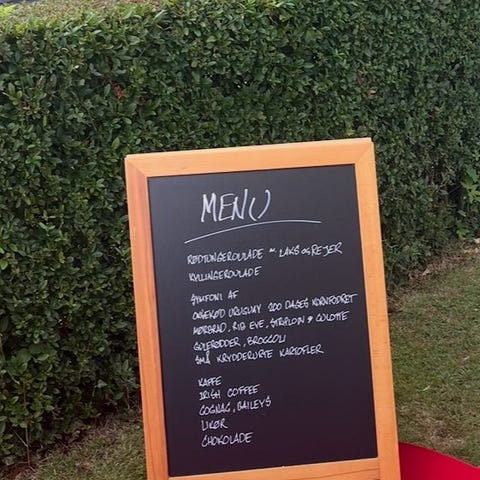 MENU
RØDTUNGEROULADE ~ LAKS OG REJER
KYLLINGEROULADE
SYMFONI AF
OKSEKØD URUGUAY 200 DAGES KORNFODRET
MØRBRAD, RIB EYE, STRIPLOIN & CULOTTE
GULERØDDER, BROCCOLI
SMÅ KRYDDERURTE KARTOFLER
KAFFE
IRISH COFFEE
COGNAC, BAILEYS
LIKØR
CHOKOLADE